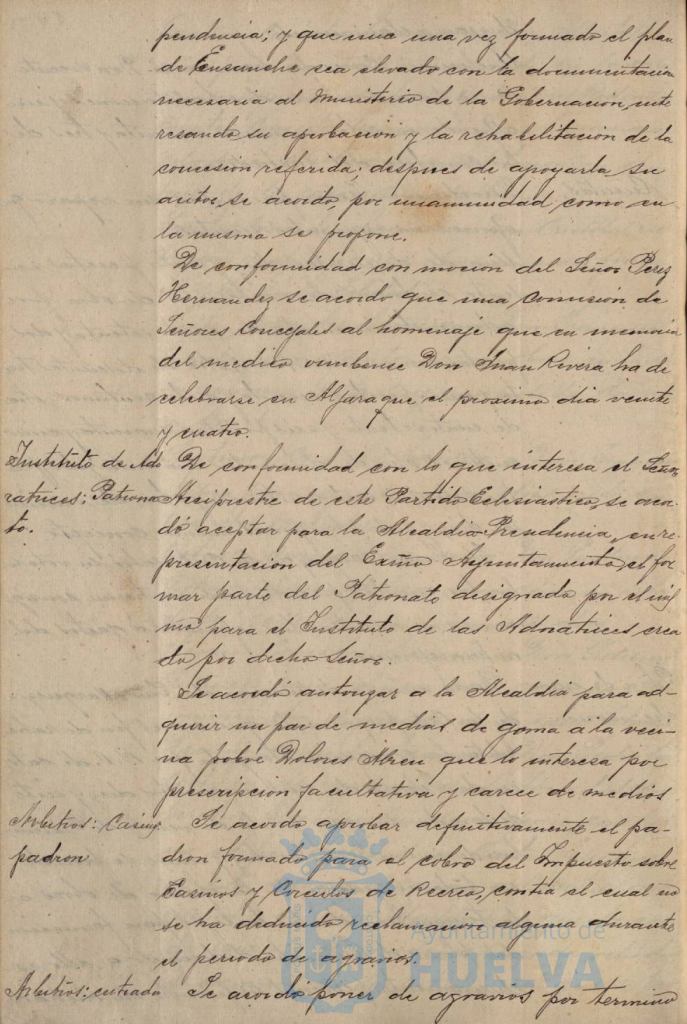 pendencia; y que una vez formado el plan
de Ensanche sea elevado con la documentación
necesaria al Ministerio de la Gobernación, inte
resando su aprobación y la rehabilitación de la
concesión referida; despues de apoyarla su
autor, se acordó, por unanimidad como en
la misma se propone.
De conformidad con moción del Señor Perez
Hernandez se acordo que una Comisión de
Señores Concejales al homenaje que en memoria
del medico onubense Don Juan Rivera ha de
celebrarse en Aljaraque el proximo dia veinte
y cuatro.
Instituto de Ado
ratrices: Patrona
to.
De conformidad con lo que interesa el Señor
Arcipreste de este Partido Eclesiastico, se acor
dó aceptar para la Alcaldia Presidencia, en re
presentacion del Exmo Ayuntamiento, el for
mar parte del Patronato designado por el mis
mo para el Instituto de las Adoratrices crea
do por dicho Señor.
Se acordó autorizar a la Alcaldia para ad
quirir un par de medias de goma á la veci
na pobre Dolores Abreu que lo interesa por
prescripción facultativa y carece de medios
Arbitrios: Casinos
padron
Se acordo aprobar definitivamente el pa
dron formado para el cobro del Impuesto sobre
Casinos y Circulos de Recreo, contra el cual no
se ha deducido reclamacion alguna durante
el periodo de agravios.
Arbitrios: entrada
Se acordó poner de agravios por termino
Ayuntamiento de
HUELVA